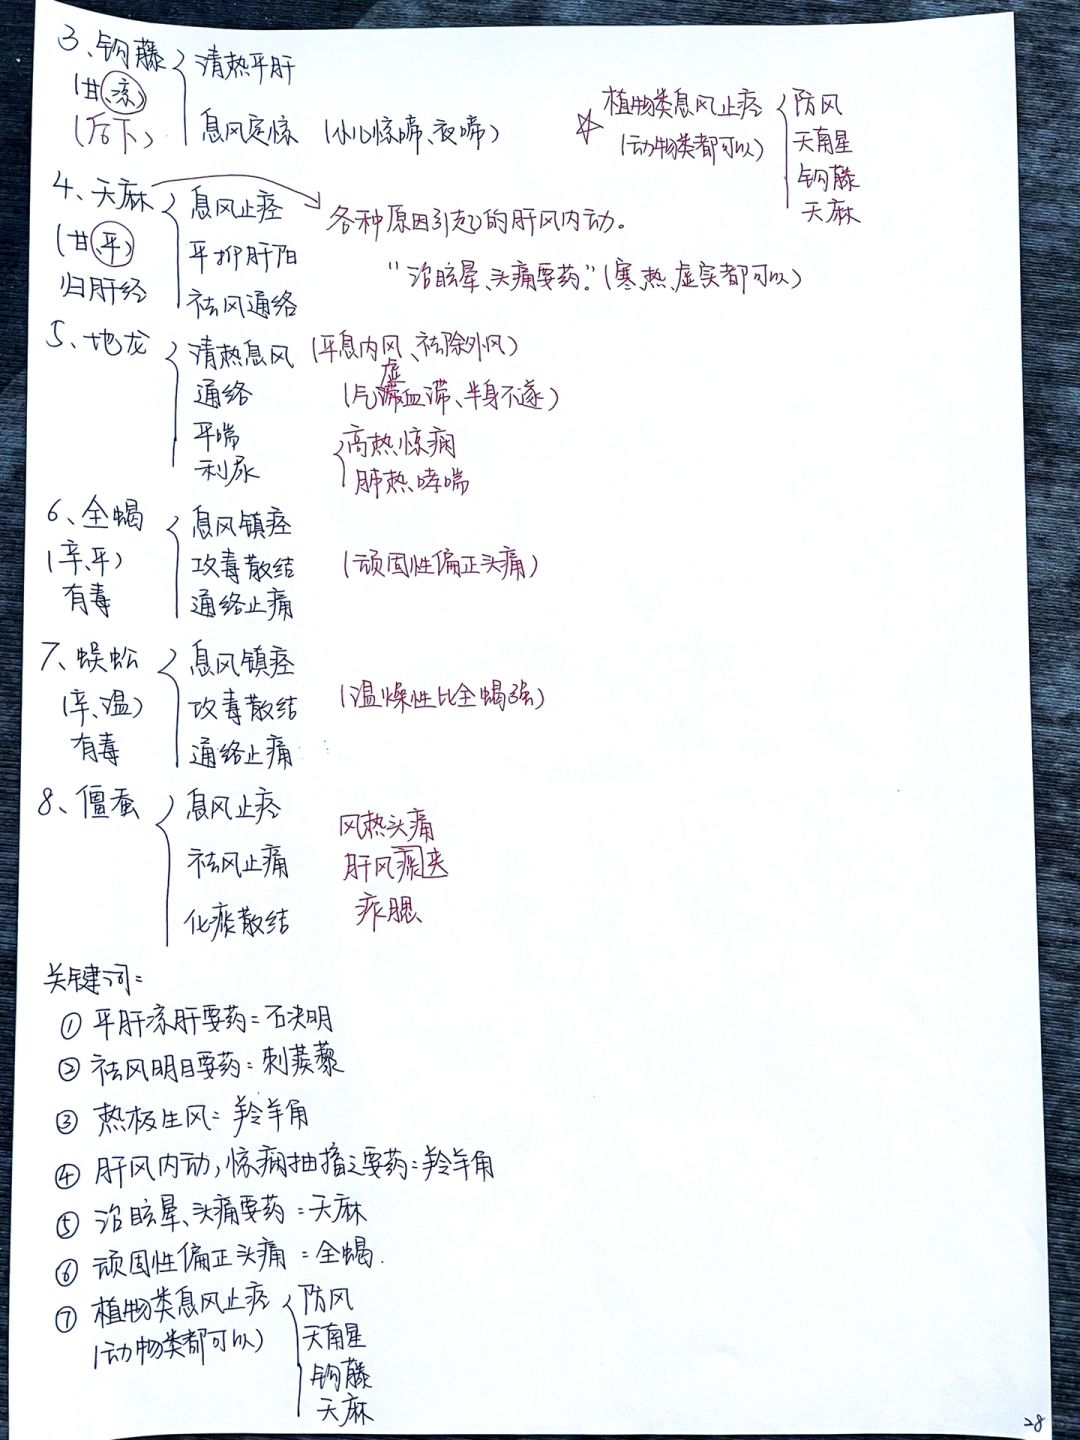 3、钩藤 清热平肝
(甘、凉)
(后下) 息风定惊 (小儿惊啼、夜啼)
☆ 植物类息风止痉 防风
(动物类都可以) 天南星
钩藤
天麻
4、天麻 息风止痉 各种原因引起的肝风内动。
(甘、平) 平抑肝阳 “治眩晕、头痛要药。”(寒、热、虚实都可以)
归肝经 祛风通络
5、地龙 清热息风 (平息内风、祛除外风)
通络 (气虚血滞、半身不遂)
平喘 高热惊痫
利尿 肺热哮喘
6、全蝎 息风镇痉
(辛、平) 攻毒散结 (顽固性偏正头痛)
有毒 通络止痛
7、蜈蚣 息风镇痉
(辛、温) 攻毒散结 (温燥性比全蝎强)
有毒 通络止痛
8、僵蚕 息风止痉 风热头痛
祛风止痛 肝风痰夹
化痰散结 痄腮
关键词:
① 平肝凉肝要药=石决明
② 祛风明目要药=刺蒺藜
③ 热极生风=羚羊角
④ 肝风内动,惊痫抽搐之要药=羚羊角
⑤ 治眩晕、头痛要药=天麻
⑥ 顽固性偏正头痛=全蝎.
⑦ 植物类息风止痉 防风
(动物类都可以) 天南星
钩藤
天麻
28